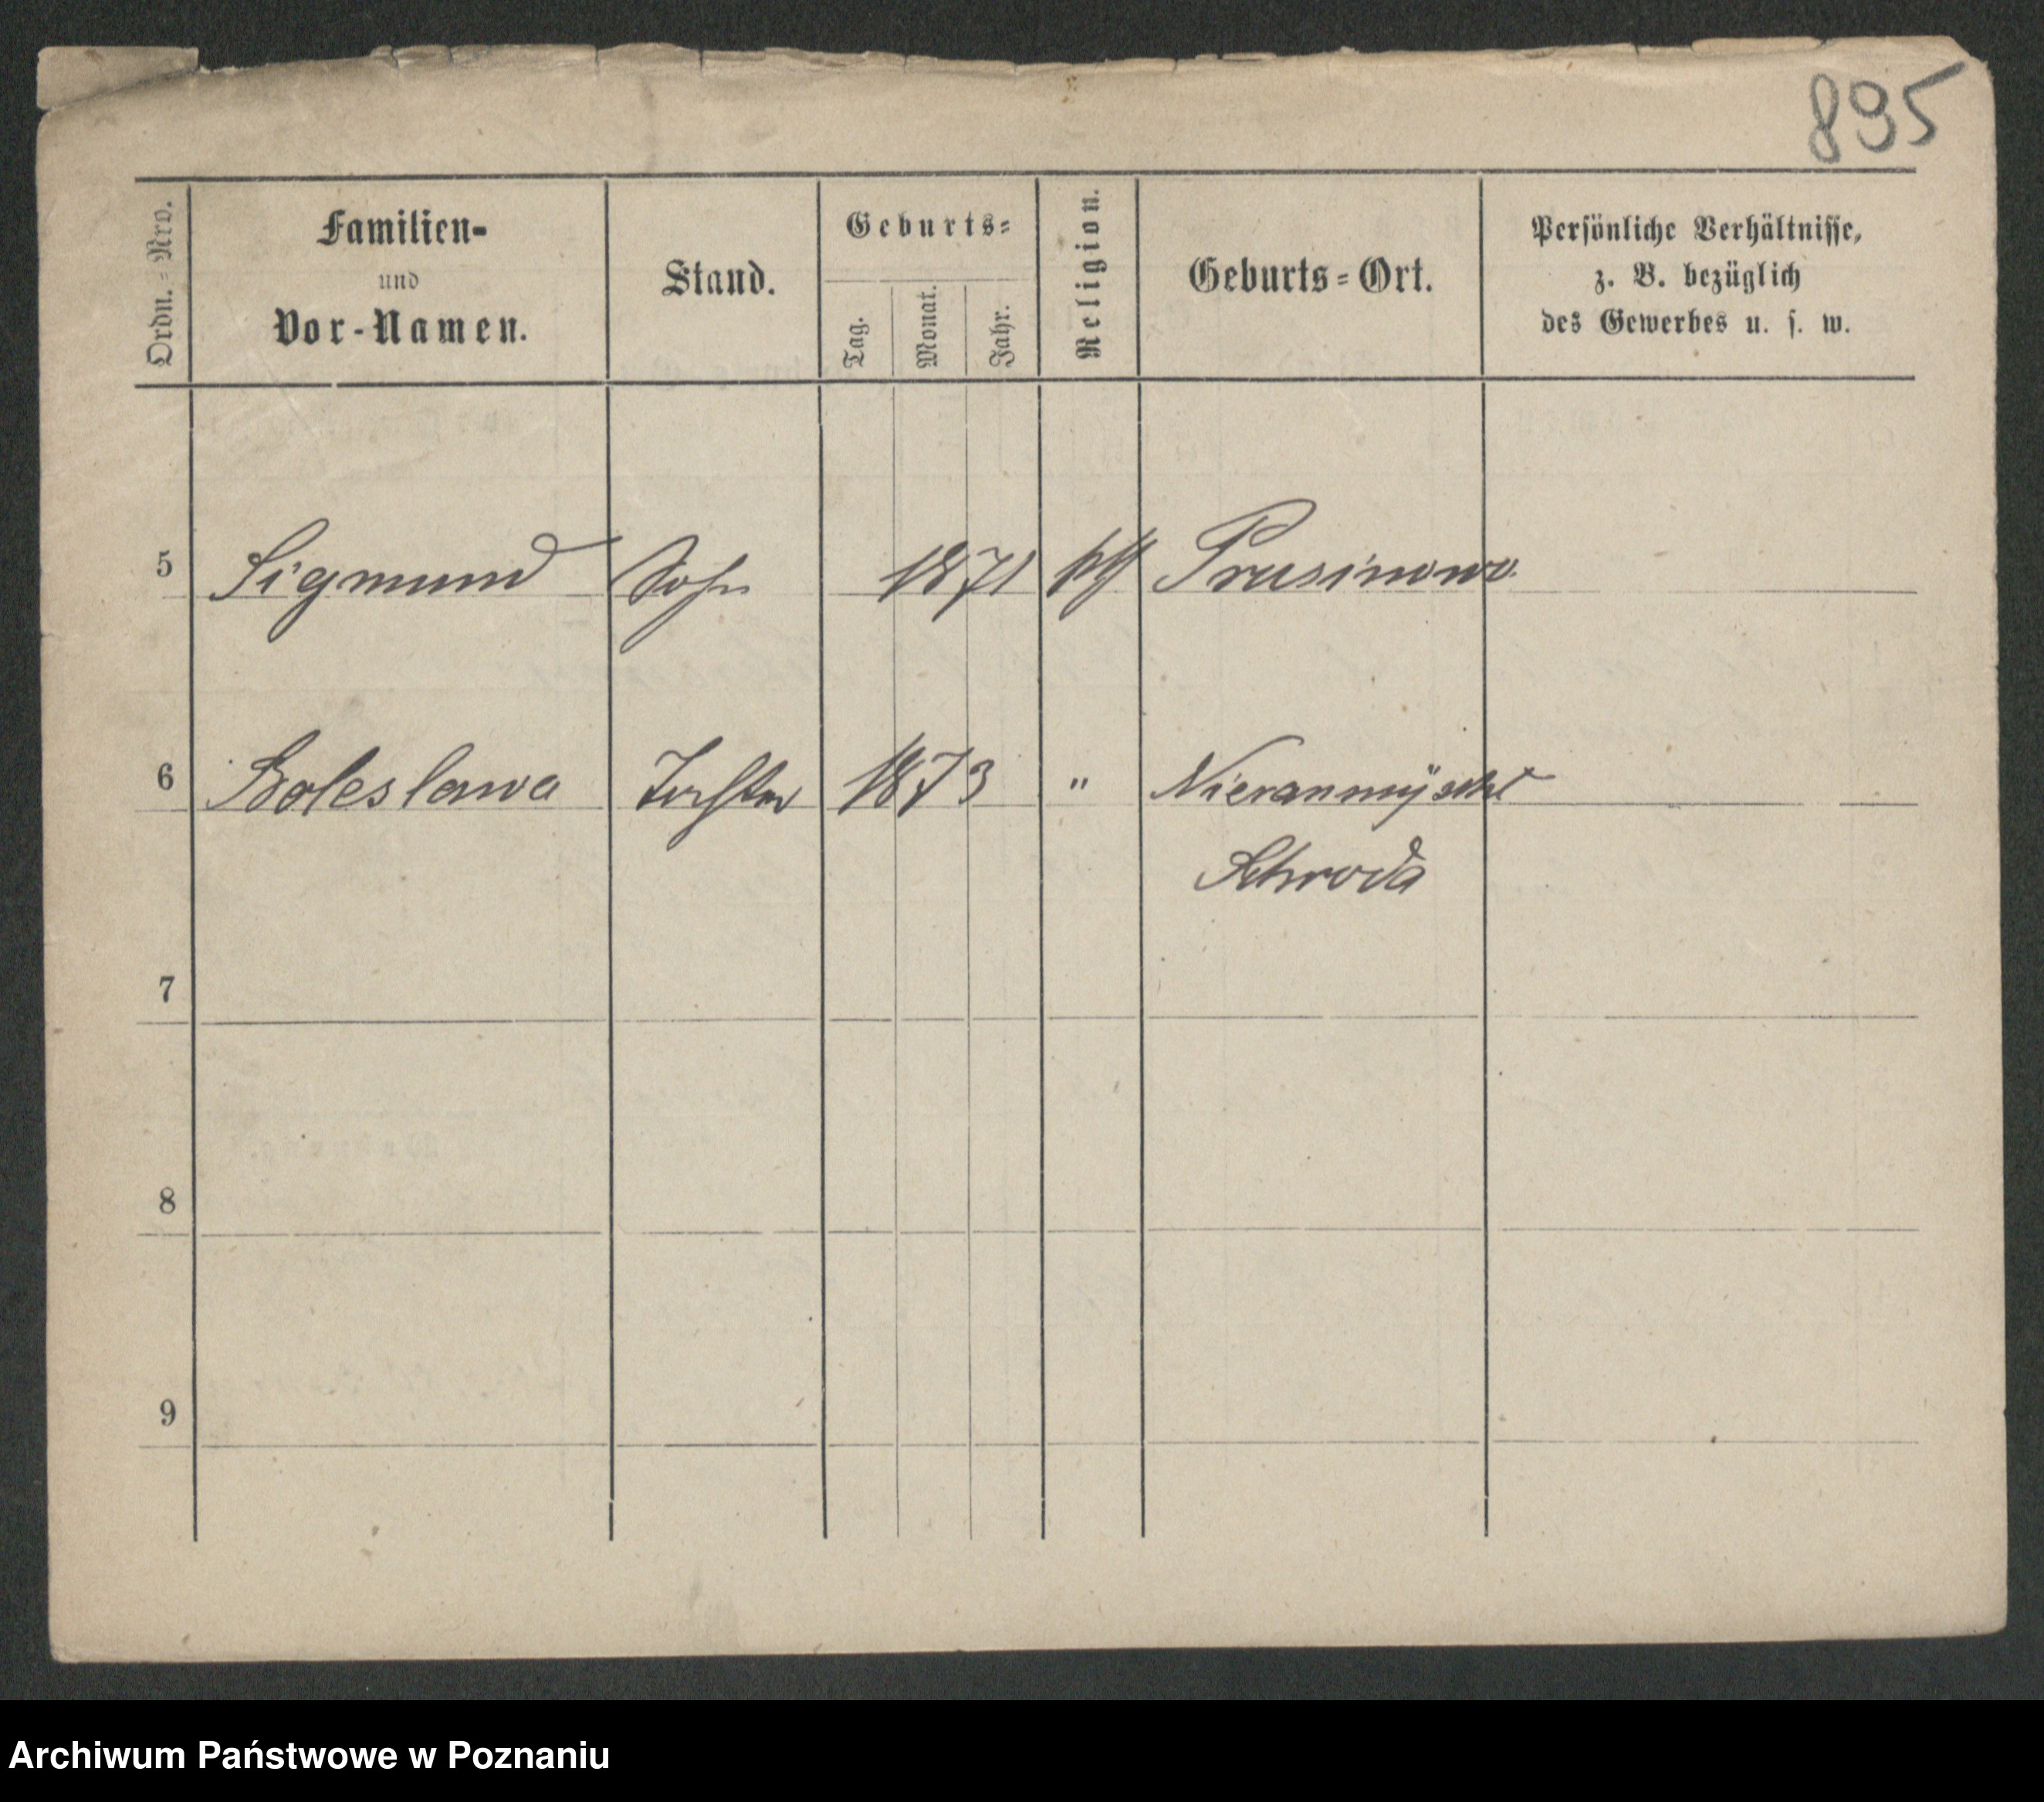 895
Ordn.=Nro.
Familien-
und
Vor-Namen.
Stand.
Geburts=
Tag.
Monat.
Jahr.
Religion.
Geburts=Ort.
Persönliche Verhältnisse,
z. B. bezüglich
des Gewerbes u. s. w.
5 Sigmund Sohn 1871 Prusinowo.
6 Boleslawa Tochter 1873 "
Schroda
7
8
9
Archiwum Państwowe w Poznaniu